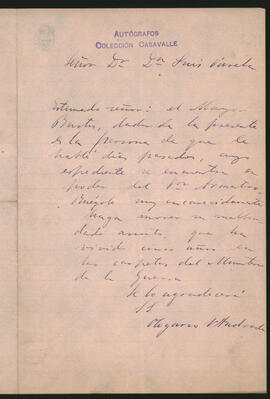 AUTÓGRAFOS
COLECCIÓN CASAVALLE
Señor Dr. Dn. Luis Varela
Estimado señor: el Mayor
dador de la presente
es la persona de que le
hablé dias pasados, cuyo
espediente se encuentra en
poder del
Ruégole muy encarecidamente
haga mover su
dado asunto, que ha
vivido cinco años en
las carpetas del Ministro
de la Guerra
Se lo agradecerá
SS
Olegario V Andrade